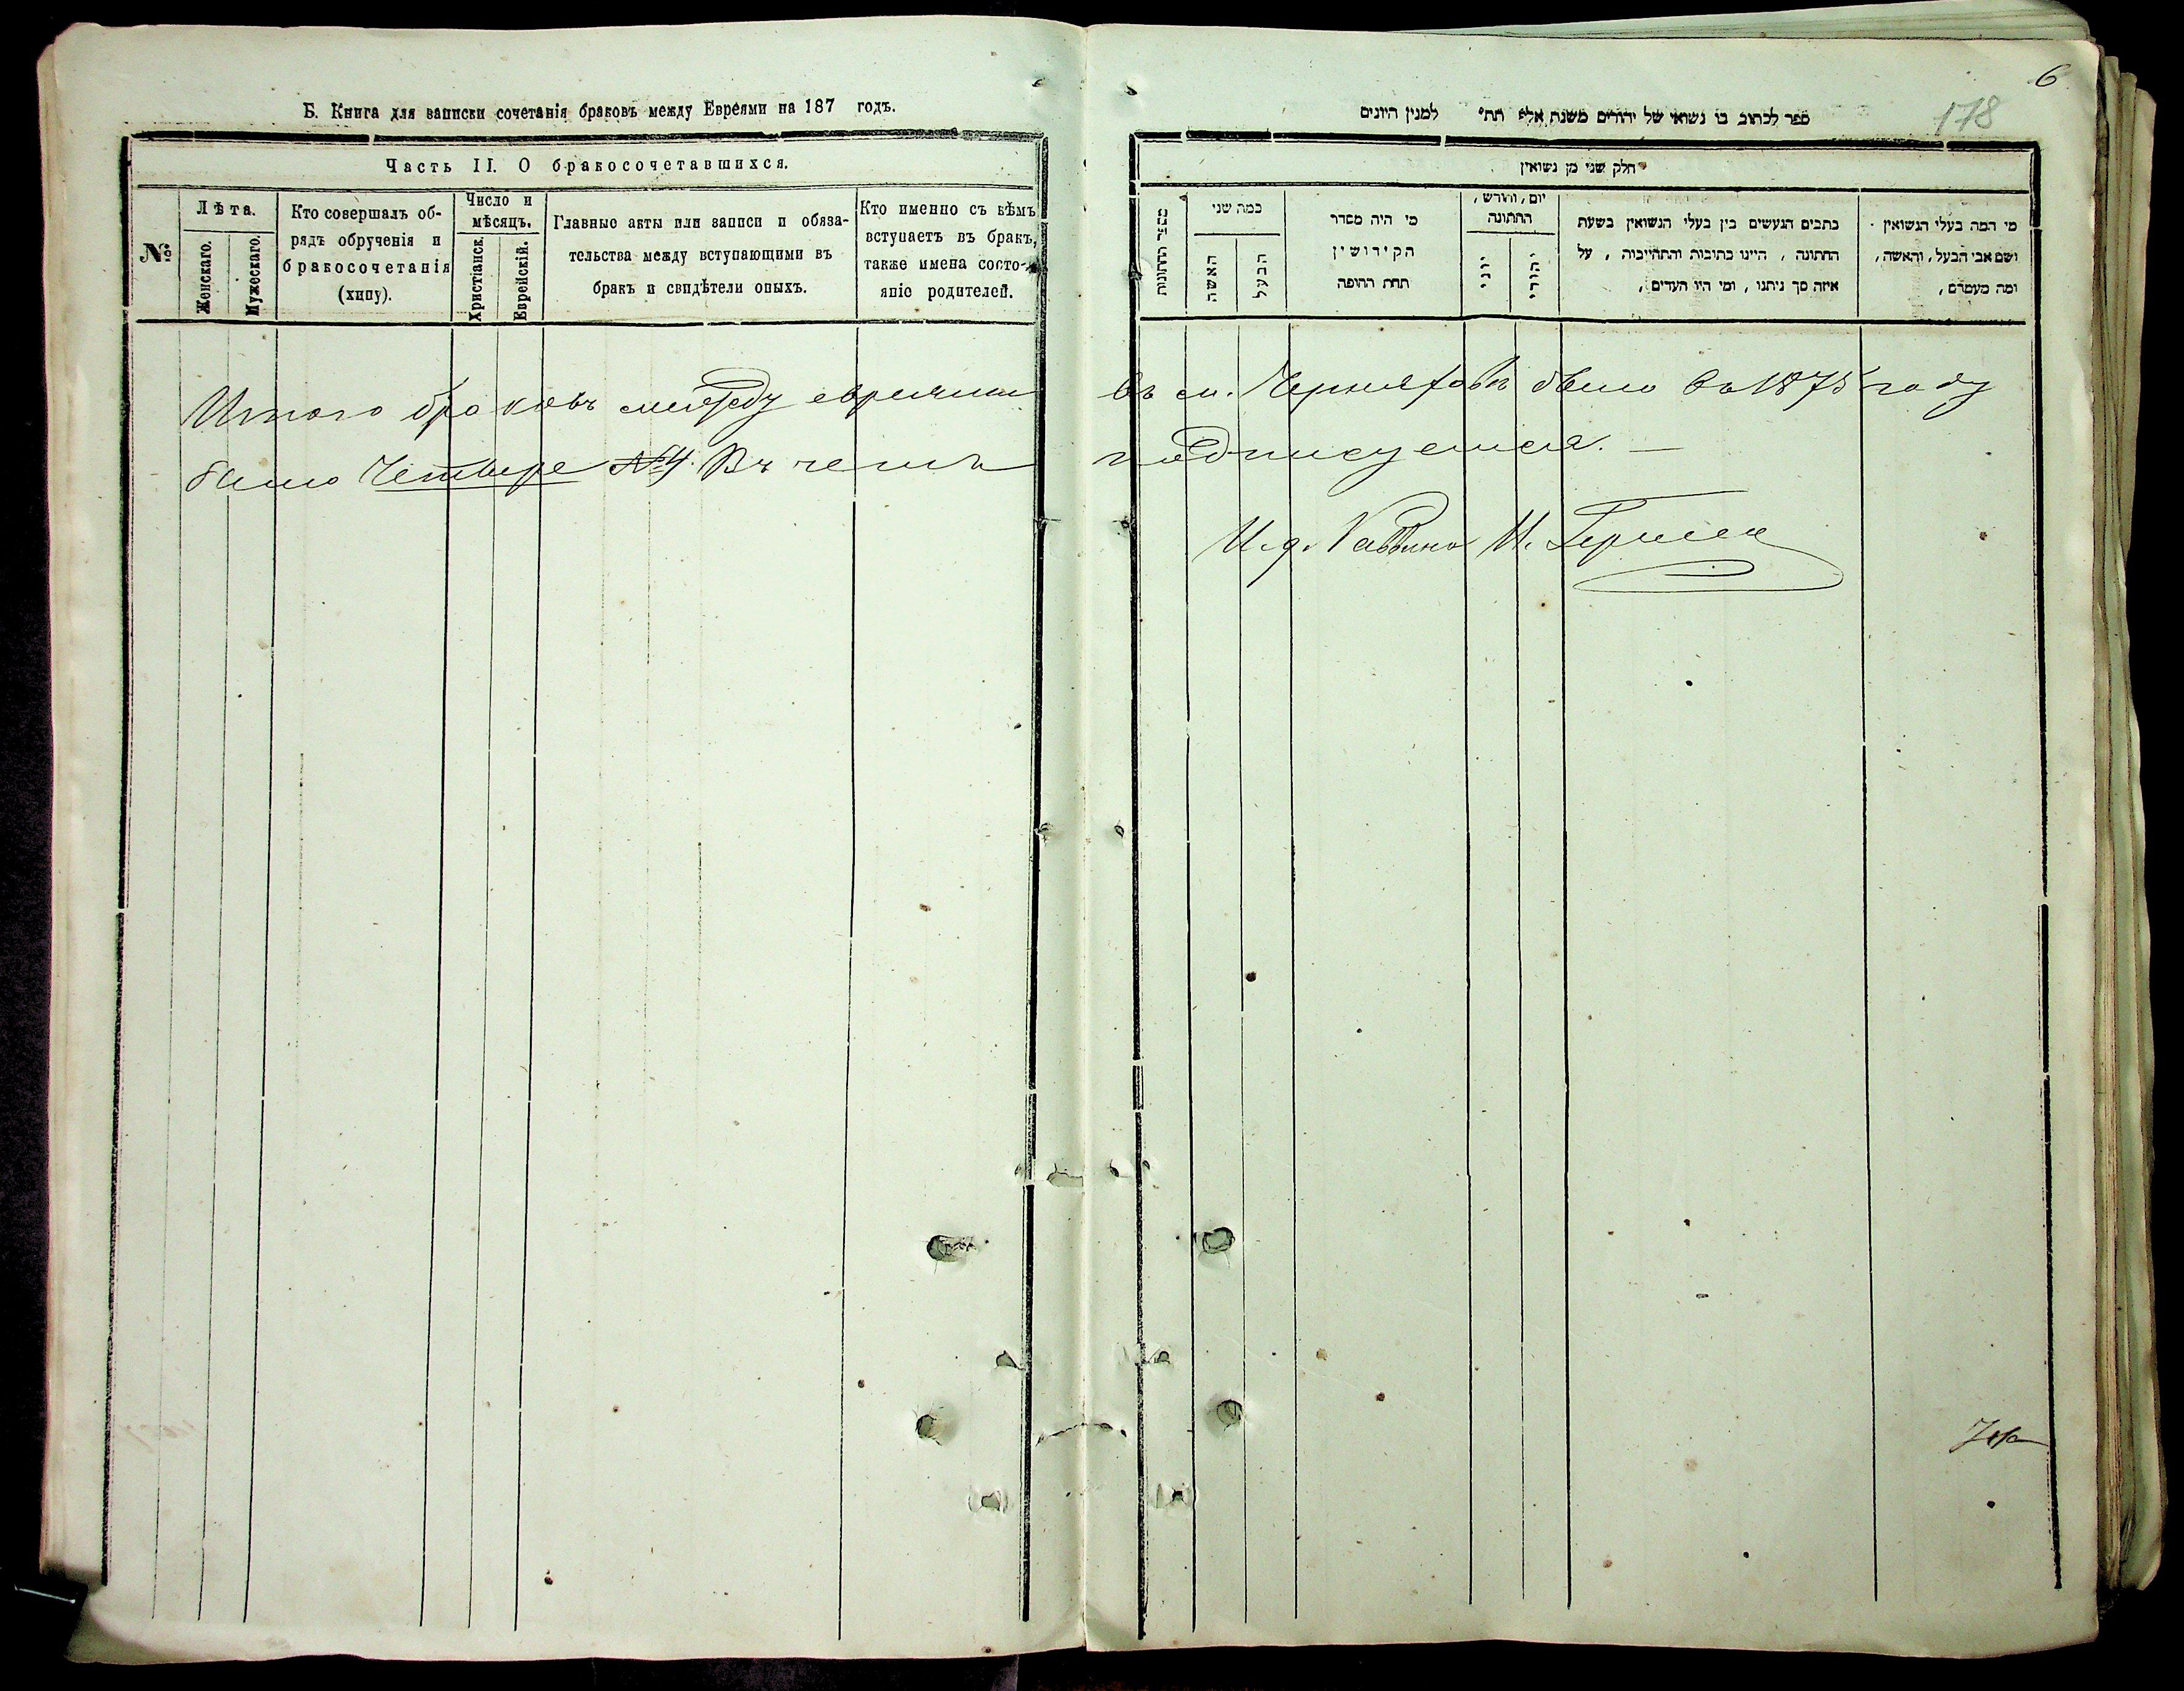 Б. Книга для записки сочетанія браковъ между Евреями на 187 годъ.
Часть II. О бракосочетавшихся.
№
Лѣта.
Женскаго.
Мужескаго.
Кто совершалъ об-
рядъ обрученія и
бракосочетанія
(хипу).
Число и
мѣсяцъ.
Христіанск.
Еврейскій.
Главные акты или записи и обяза-
тельства между вступающими въ
бракъ и свидѣтели оныхъ.
Кто именно съ кѣмъ
вступаетъ въ бракъ,
также имена состо-
яніе родителей.
Итого браковъ между евреями
было Четыре №4. Въ чемъ
6
178
ספר לכתוב בו נשואי של יהודים משנת אלף תת״ למנין היונים
חלק שני מן נשואין
מספר החתונות
כמה שני
האשה
הבעל
מי היה מסדר
הקידושין
תחת החופה
יום, וחודש,
החתונה
יוני
יהודי
כתבים הנעשים בין בעלי הנשואין בשעת
החתונה, היינו כתובות והתחייבות, על
איזה סך ניתנו, ומי היו העדים,
מי המה בעלי הנשואין
ושם אבי הבעל, והאשה,
ומה מעמדם,
въ м. Черняховѣ было въ 1875 году
подписуемся. —
И. д. Раввина И.